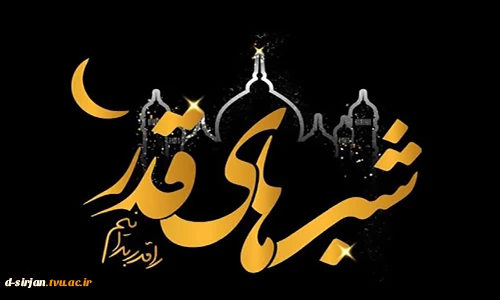 شب‌های قدر
را قدر بدانیم
d-sirjan.tvu.ac.ir